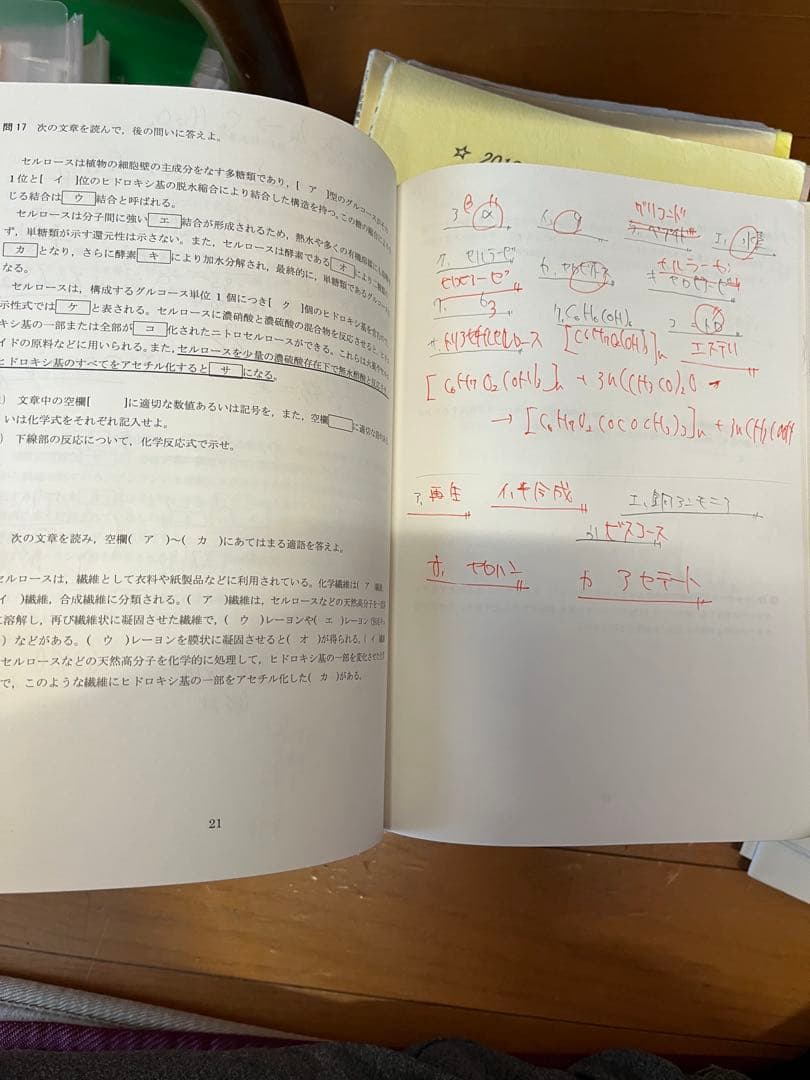 問17 次の文章を読んで,後の問いに答えよ。
セルロースは植物の細胞壁の主成分をなす多糖類であり,[ ア ]型のグルコースが
1位と[ イ ]位のヒドロキシ基の脱水縮合により結合した構造を持つ。この糖の縮合によ
じる結合は ウ 結合と呼ばれる。
セルロースは分子間に強い エ 結合が形成されるため,熱水や多くの有機溶媒にも
ず,単糖類が示す還元性は示さない。また,セルロースは酵素である オ により
カ となり,さらに酵素 キ により加水分解され,最終的に,単糖類であるグルコー
なる。
セルロースは,構成するグルコース単位1個につき[ ク ]個のヒドロキシ基を
示性式では ケ と表される。セルロースに濃硝酸と濃硫酸の混合物を反応させると,
キシ基の一部または全部が コ 化されたニトロセルロースができる。これらは
イドの原料などに用いられる。また,セルロースを少量の濃硫酸存在下で無水酢酸と
ヒドロキシ基のすべてをアセチル化すると サ になる。
) 文章中の空欄[ ]に適切な数値あるいは記号を,また,空欄 に適切な
いは化学式をそれぞれ記入せよ。
) 下線部の反応について,化学反応式で示せ。
次の文章を読み,空欄( ア )~( カ )にあてはまる適語を答えよ。
セルロースは,繊維として衣料や紙製品などに利用されている。化学繊維は( ア )繊維,
イ )繊維,合成繊維に分類される。( ア )繊維は,セルロースなどの天然高分子を
に溶解し,再び繊維状に凝固させた繊維で,( ウ )レーヨンや( エ )レーヨン
) などがある。( ウ )レーヨンを膜状に凝固させると( オ )が得られる。( イ )
セルロースなどの天然高分子を化学的に処理して,ヒドロキシ基の一部を変化させた
で,このような繊維にヒドロキシ基の一部をアセチル化した( カ )がある。
21
β α
グリコシド
エ、水素
オ、セルラーゼ
セルラーゼ
セロビアーゼ
3
エステル
[C6H7O2(OH)3]n
[C6H7O2(OH)3]n + 3n(CH3CO)2O
→ [C6H7O2(OCOCH3)3]n + 3nCH3COOH
ア、再生 イ、半合成 エ、銅アンモニア
ウ、ビスコース
オ、セロハン カ アセテート